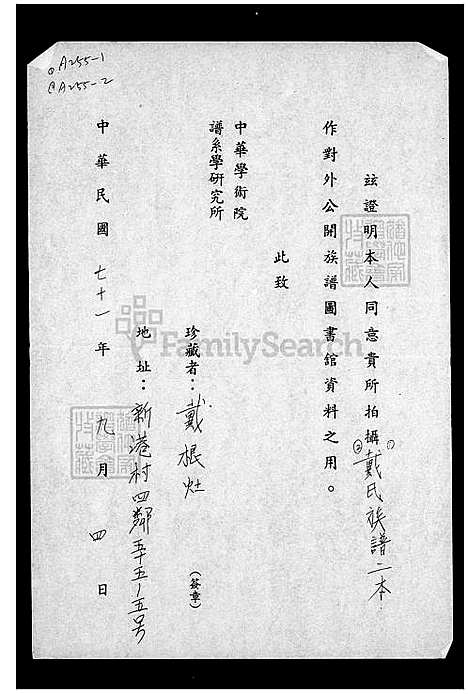 A255-1
A255-2
玆證明本人同意貴所拍攝戴氏族譜二本
作對外公開族譜圖書舘資料之用。
此致
中華學術院
譜系學研究所
珍藏者：戴根灶（簽章）
地址：新港村四鄰五十五-五号
中華民國七十一年九月四日
FamilySearch